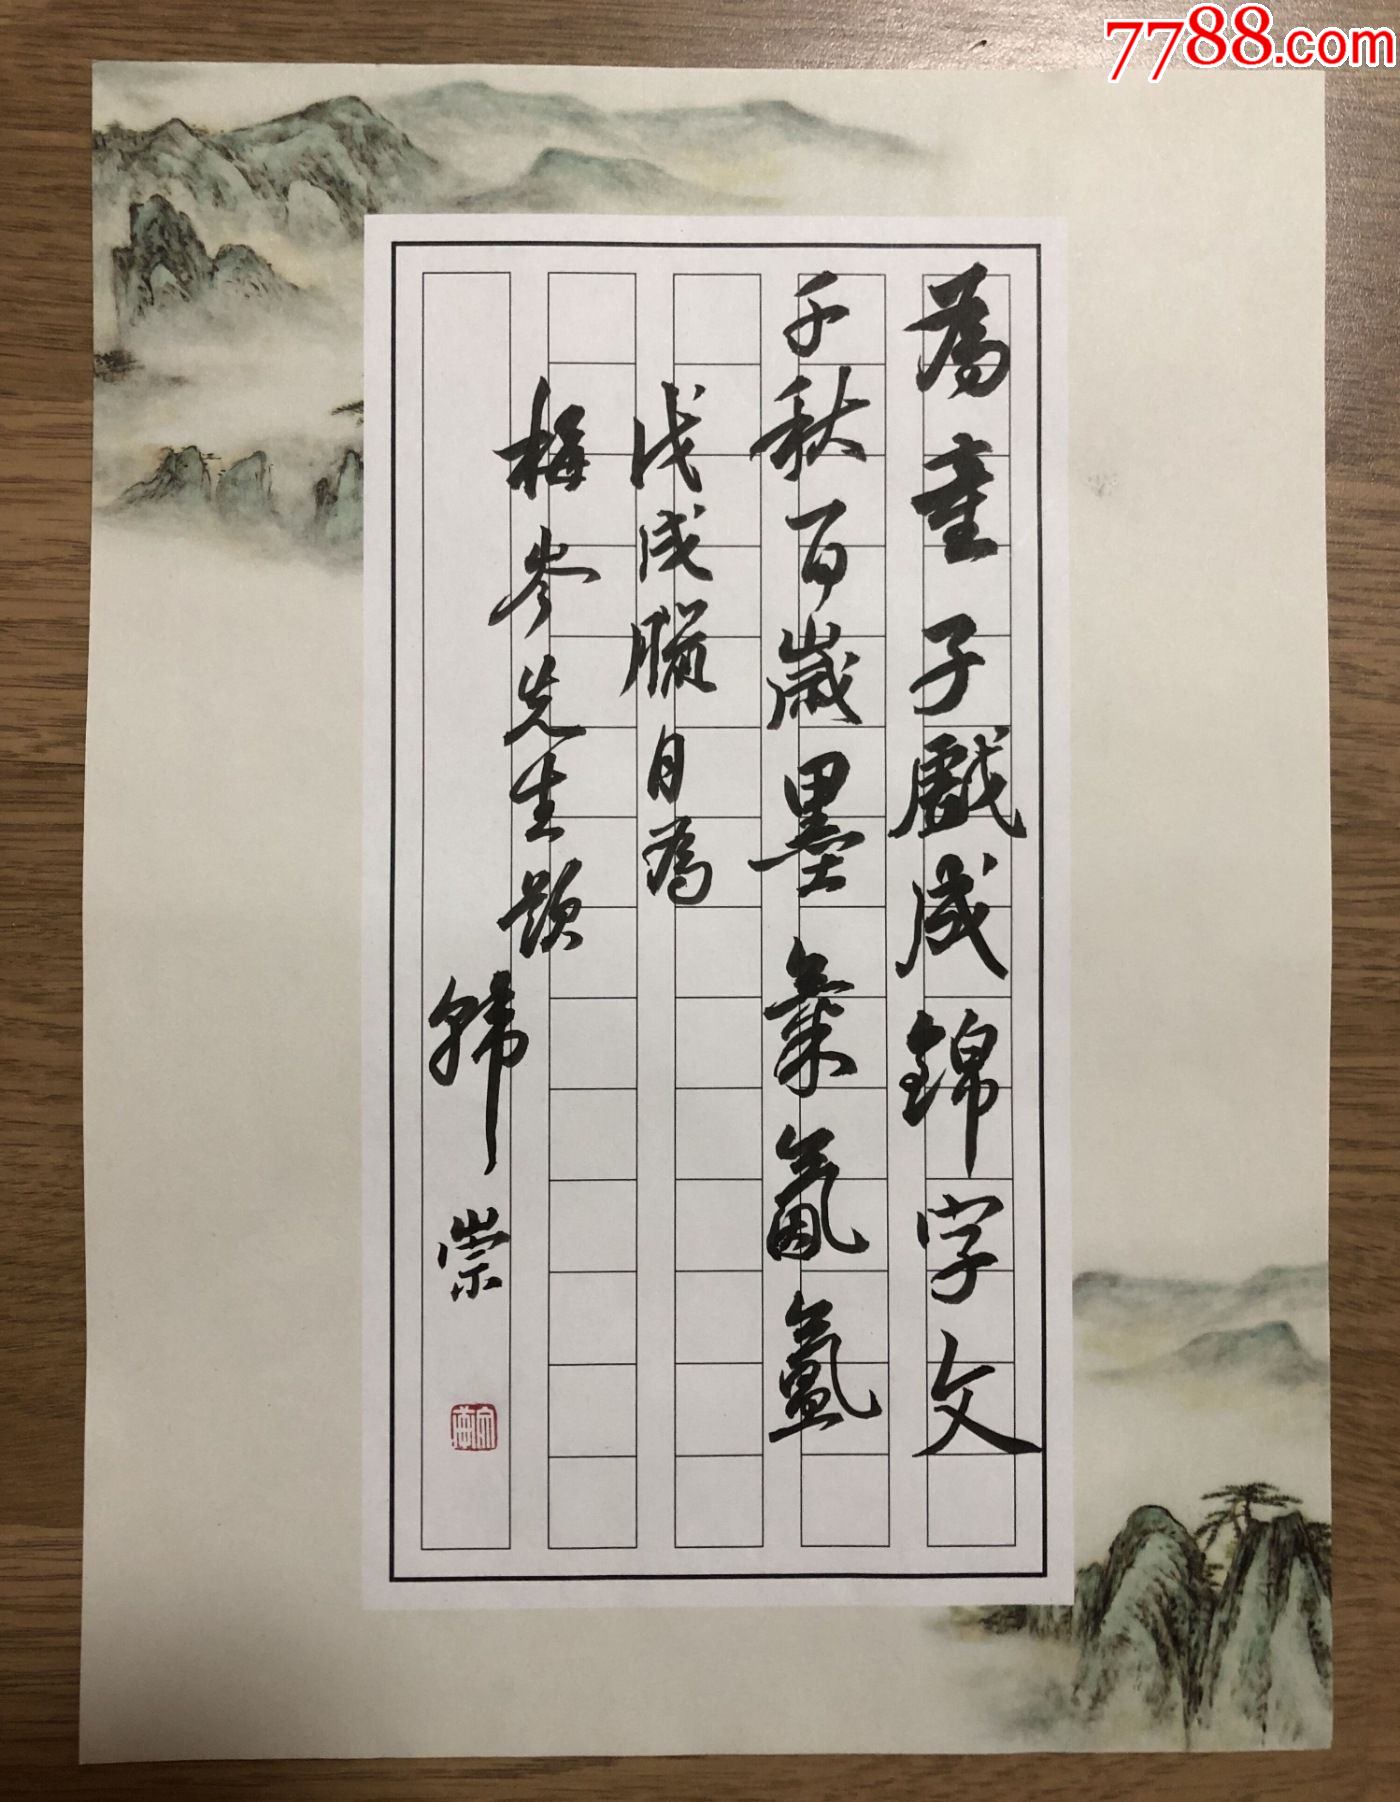 7788.com
為童子戲成錦字文
千秋百歲墨氣氤氳
戊戌臘月為
梅岑先生題
韓崇